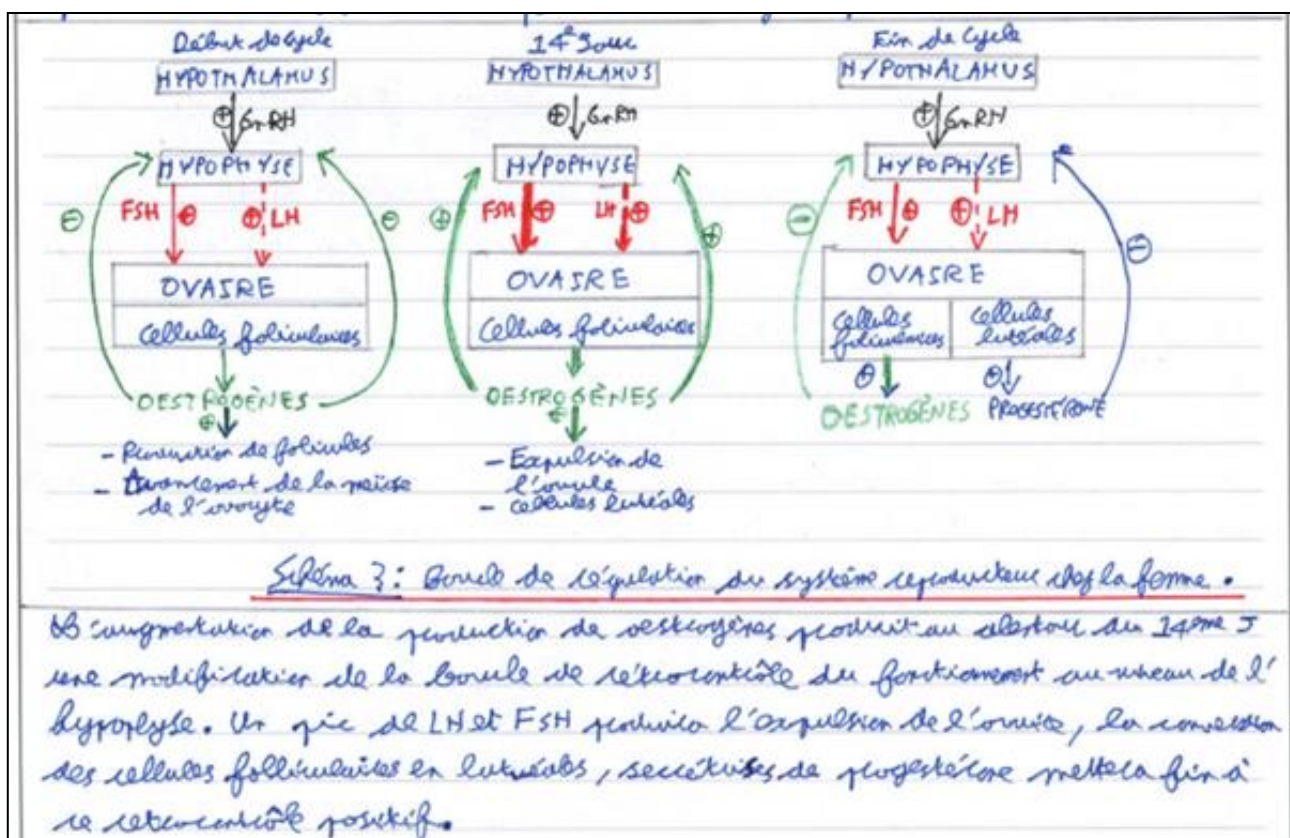 Début de cycle
HYPOTHALAMUS
⊕ GnRH
HYPOPHYSE
⊖ FSH ⊕ ⊕ LH ⊖
OVAIRE
Cellules foliculaires
OESTROGÈNES
⊕
- de folicules
- Avancement de la méiose
de l'ovocyte
14e Jour
HYPOTHALAMUS
⊕ GnRH
HYPOPHYSE
⊕ FSH ⊕ LH ⊕ ⊕
OVAIRE
Cellules foliculaires
OESTROGÈNES
⊕
- Expulsion de
l'ovule
- cellules lutéales
Fin de Cycle
HYPOTHALAMUS
⊕ GnRH
HYPOPHYSE
⊖ FSH ⊕ ⊕ LH ⊖
OVAIRE
cellules foliculaires
cellules lutéales
⊕ ⊕
OESTROGÈNES PROGESTÉRONE
Schéma 3: Boucle de régulation du système reproducteur chez la femme.
L'augmentation de la production de oestrogènes produit au alentour du 14ème J
une modification de la boucle de rétrocontrôle du fonctionement au niveau de l'
hypophyse. Un pic de LH et FSH produira l'expulsion de l'ovule, la conversion
des cellules folliculaires en lutuéals, de progestérone mettera fin à
ce rétrocontrôle positif.